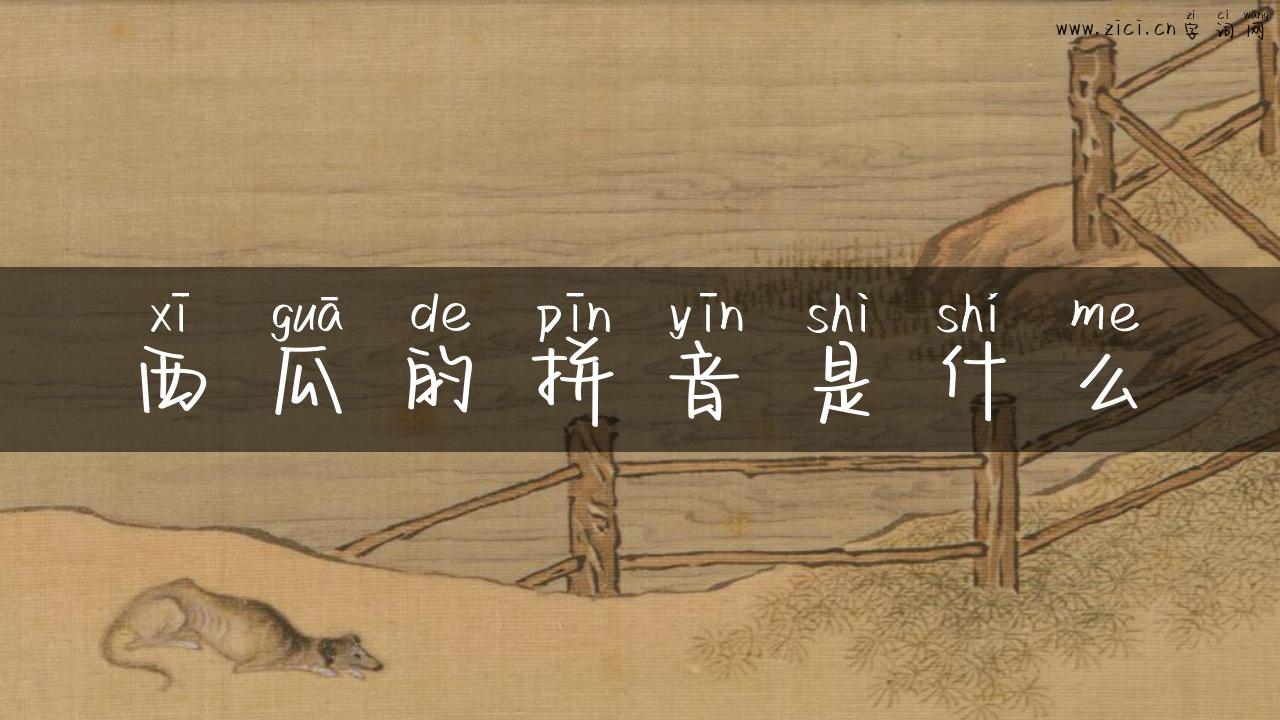 zi ci wang
www.zici.cn 字词网
xī guā de pīn yīn shì shí me
西瓜的拼音是什么